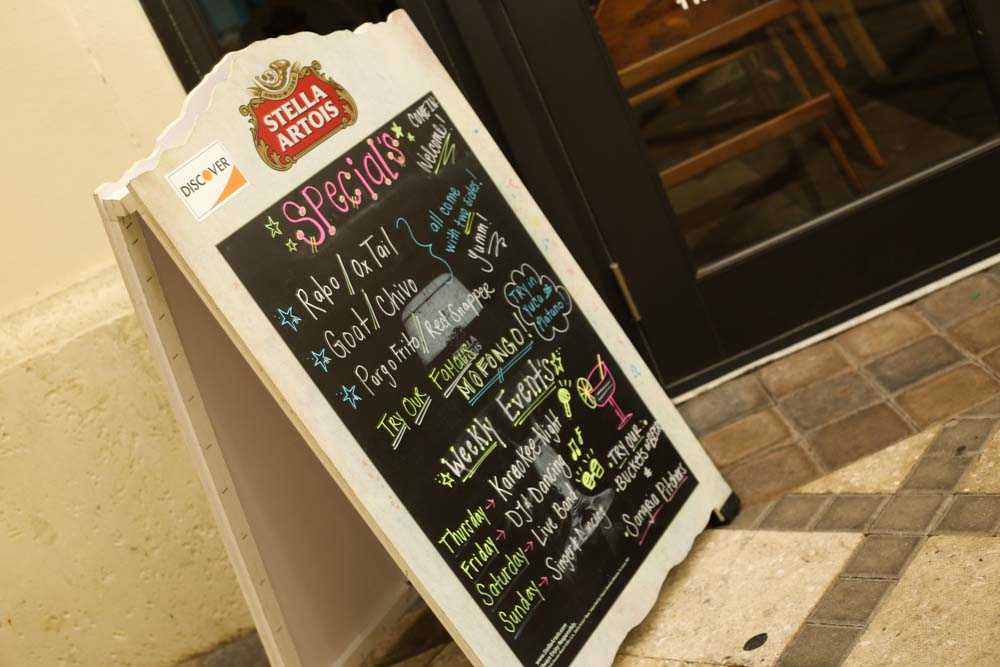 STELLA
ARTOIS
DISCOVER
Special's
COME IN
Welcome!
Rabo/Ox Tail
Goat/Chivo
Pargo Frito/Red Snapper
all come
with two sides!
Yumm!
TRY OUR FAMOUS
MOFONGO!
TRY in
YUCA or
Platano!
Weekly Events
Thursday → Karaokee Night
Friday → DJ & Dancing
Saturday → Live Band
Sunday → Singer & Dancing
• TRY OUR •
BUCKETS BEER
• Sangria Pitchers